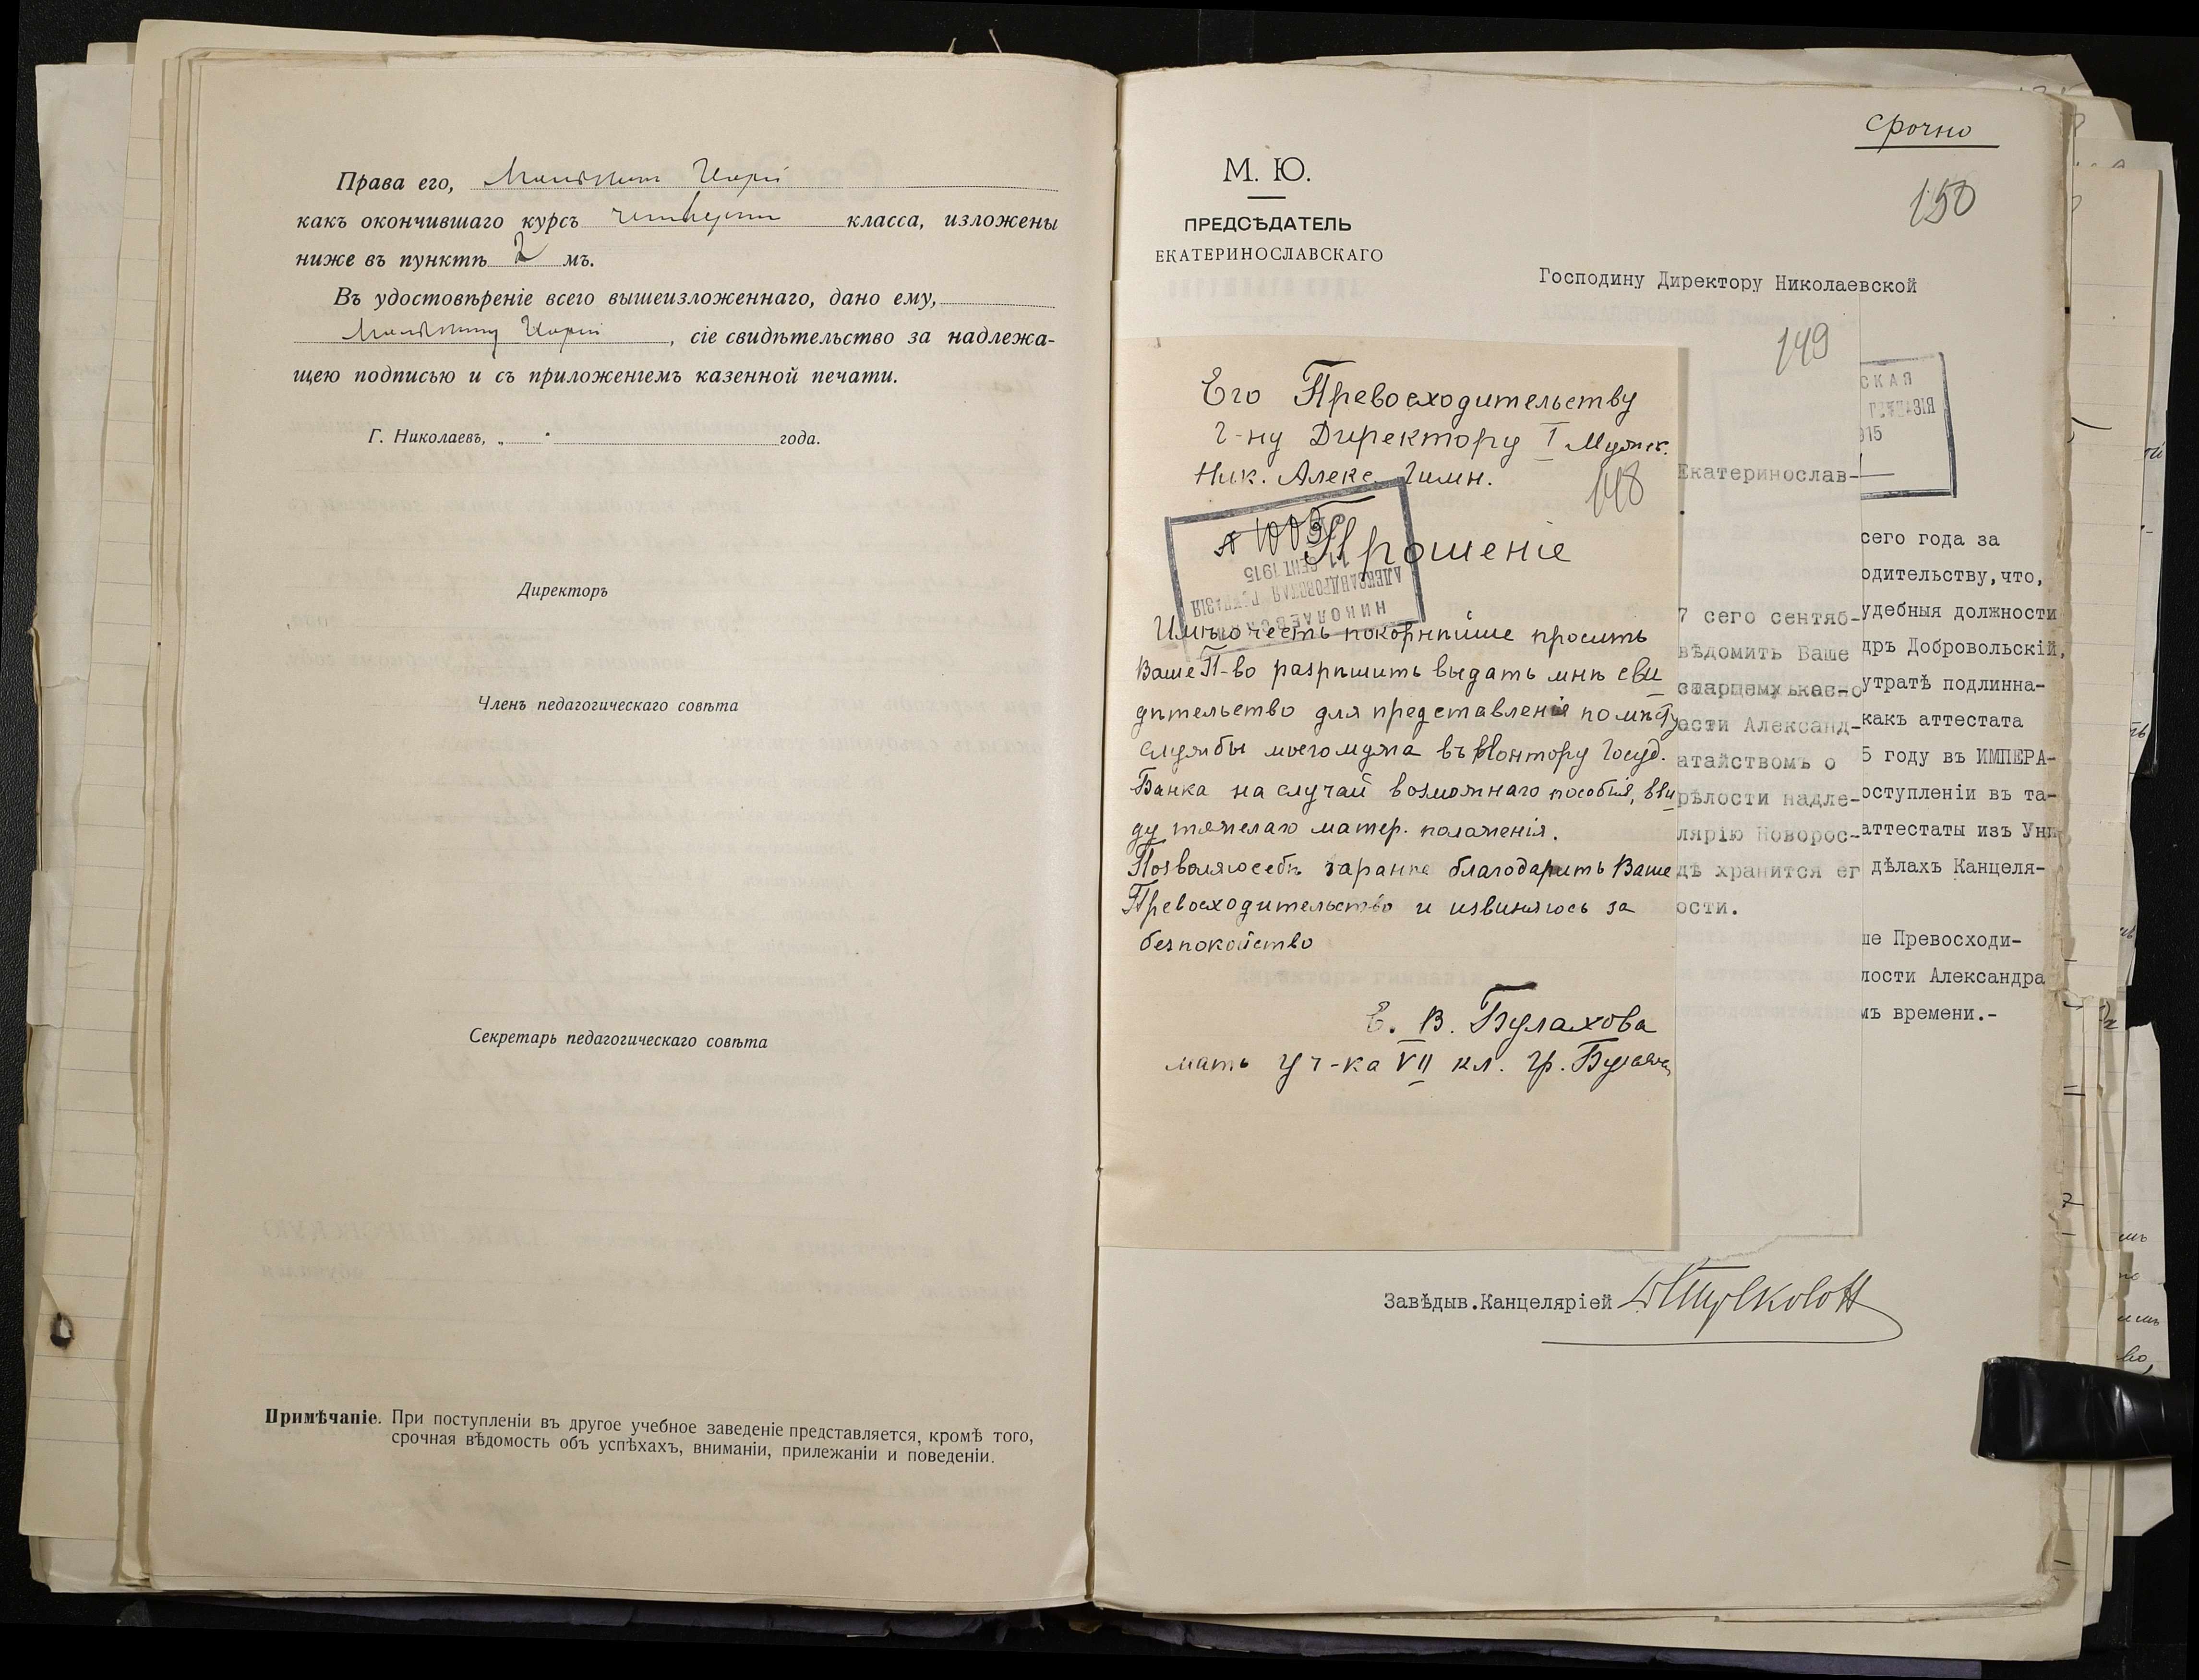 Права его,
какъ окончившаго курсъ класса, изложены
ниже въ пунктѣ 2 мъ.
Въ удостовѣреніе всего вышеизложеннаго, дано ему,
, сіе свидѣтельство за надлежа-
щею подписью и съ приложеніемъ казенной печати.
Г. Николаевъ, „ " года.
Директоръ
Членъ педагогическаго совѣта
Секретарь педагогическаго совѣта
Примѣчаніе. При поступленіи въ другое учебное заведеніе представляется, кромѣ того,
срочная вѣдомость объ успѣхахъ, вниманіи, прилежаніи и поведеніи.
срочно
150
М. Ю.
ПРЕДСѢДАТЕЛЬ
ЕКАТЕРИНОСЛАВСКАГО
Господину Директору Николаевской
149
Его Превосходительству
Г-ну Директору I Мужск.
Ник. Алекс. Гимн.
148
Прошеніе
НИКОЛАЕВСКАЯ
АЛЕКСАНДРОВСКАЯ ГИМНАЗІЯ
СЕНТ 1915
Имѣю честь покорнѣйше просить
Ваше П-во разрѣшить выдать мнѣ сви
дѣтельство для представленія по мѣсту
службы моего мужа въ Контору Госуд.
Банка на случай возможнаго пособія, вви
ду тяжелаго матер. положенія.
Позволяю себѣ заранѣе благодарить Ваше
Превосходительство и извиняюсь за
безпокойство
Е. В. Булахова
мать уч-ка VII кл. Гр. Булахова
Екатеринослав-
7 сего сентяб-
вѣдомить Ваше
ости Александ-
атайствомъ о
рѣлости надле-
лярію Новорос-
дѣ хранится ег
ости.
СКАЯ
ГИМНАЗІЯ
915
сего года за
одительству,что,
удебныя должности
дръ Добровольскій,
утратѣ подлинна-
какъ аттестата
5 году въ ИМПЕРА-
оступленіи въ та-
аттестаты изъ Уни
дѣлахъ Канцеля-
ше Превосходи-
лости Александра
мъ времени.-
Завѣдыв.Канцеляріей